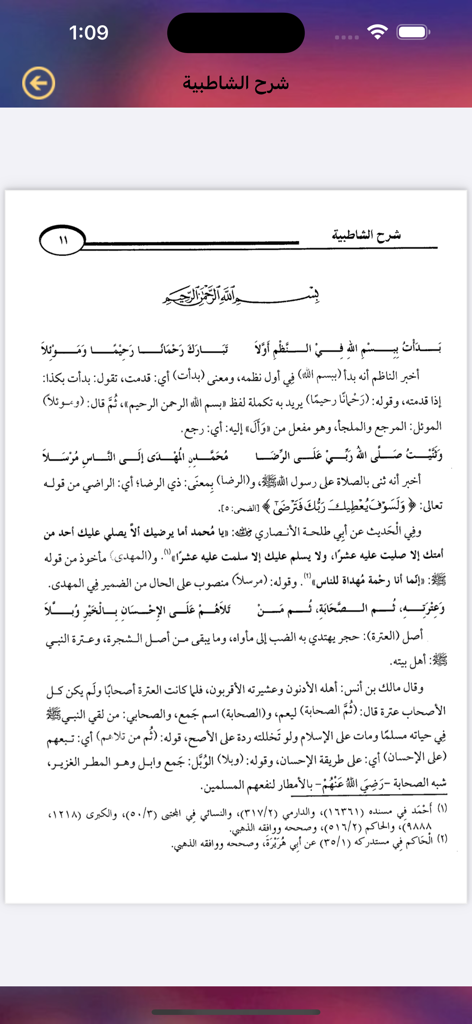 1:09
شرح الشاطبية
شرح الشاطبية
١١
بِسْمِ اللَّهِ الرَّحْمَنِ الرَّحِيمِ
بَدَأْتُ بِبِسْمِ اللهِ فِيْ النَّظْمِ أَوَّلاَ تَبَارَكَ رَحْمَانًا رَحِيْمًا وَمَوْئِلاَ
أخبر الناظم أنه بدأ (ببسم الله) فِي أول نظمه، ومعنى (بدأت) أي: قدمت، تقول: بدأت بكذا:
إذا قدمته، وقوله: (رَحْمَانًا رحيمًا) يريد به تكملة لفظ «بسم الله الرحمن الرحيم»، ثُمَّ قال: (وموئلاً)
الموئل: المرجع والملجأ، وهو مفعل من «وَأَلَ» إليه: أي: رجع.
وَثَنَّيْتُ صَلَّى اللهُ رَبِّيْ عَلَى الرِّضَا مُحَمَّدٍنِ الْمُهْدَى إِلَى النَّاسِ مُرْسَلاَ
أخبر أنه ثنى بالصلاة على رسول اللهﷺ، و(الرضا) بِمعنَى: ذي الرضا؛ أي: الراضي من قوله
تعالى: ﴿ وَلَسَوْفَ يُعْطِيكَ رَبُّكَ فَتَرْضَىٰٓ ﴾ [الضحى: ٥].
وفِي الْحَديث عن أبِي طلحة الأنصاري ﷺ: «يا مُحمد أما يرضيك ألاَّ يصلي عليك أحد من
أمتك إلا صليت عليه عشرًا، ولا يسلم عليك إلا سلمت عليه عشرًا»(١). و(المهدى) مأخوذ من قوله
ﷺ: «إنما أنا رحْمة مُهداة للناس»(٢). وقوله: (مرسلاً) منصوب على الحال من الضمير فِي المهدى.
وَعِتْرَتِهِ، ثُمَّ الصَّحَابَةِ، ثُمَّ مَنْ تَلاَهُمْ عَلَى الإِحْسَانِ بِالْخَيْرِ وُبَّلاَ
أصل (العترة): حجر يهتدي به الضب إلى مأواه، وما يبقى من أصل الشجرة، وعترة النبي
ﷺ: أهل بيته.
وقال مالك بن أنس: أهله الأدنون وعشيرته الأقربون، فلما كانت العترة أصحابًا ولَم يكن كل
الأصحاب عترة قال: (ثُمَّ الصحابة) ليعم، و(الصحابة) اسم جَمع، والصحابي: من لقي النبِيﷺ
فِي حياته مسلمًا ومات على الإسلام ولو تَخللته ردة على الأصح، قوله: (ثُم من تلاهم) أي: تبعهم
(على الإحسان) أي: على طريقة الإحسان، وقوله: (وبلا) الوُبَّل: جَمع وابل وهو المطر الغزير،
شبه الصحابة -رَضِيَ اللهُ عَنْهُمْ- بالأمطار لنفعهم المسلمين.
(١) أَحْمَد فِي مسنده (١٦٣٦١)، والدارمي (٣١٧/٢)، والنسائي فِي المجتبى (٥٠/٣)، والكبرى (١٢١٨،
٩٨٨٨)، والحاكم (٥١٦/٢)، وصححه ووافقه الذهبي.
(٢) الْحَاكم فِي مستدركه (٣٥/١) عن أبِي هُرَيْرَةَ، وصححه ووافقه الذهبي.